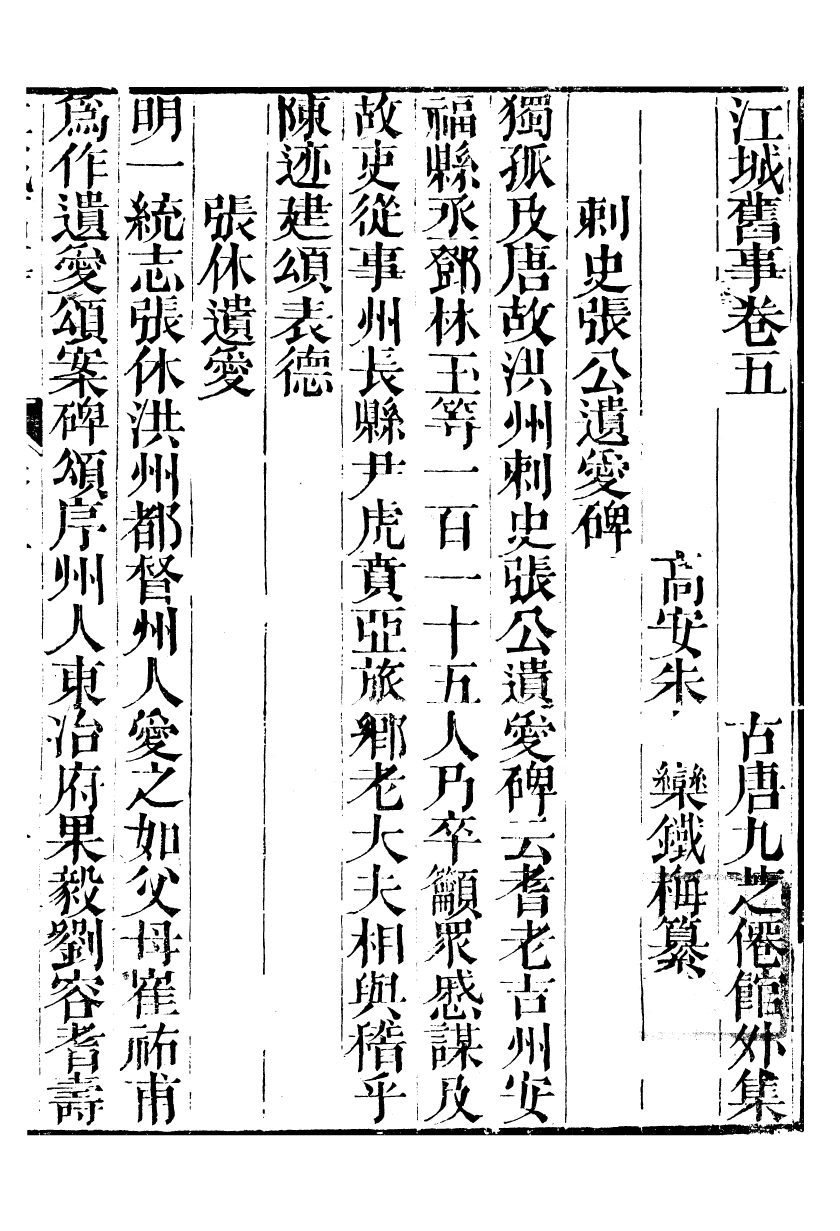 江城舊事卷五　　　　　　古唐九芝僊館外集
高安朱　欒鐵梅纂
刺史張公遺愛碑
獨孤及唐故洪州刺史張公遺愛碑云耆老吉州安
福縣丞鄧林玉等一百一十五人乃卒籲眾慼謀及
故吏從事州長縣尹虎賁亞旅鄉老大夫相與稽乎
陳迹建頌表德
張休遺愛
明一統志張休洪州都督州人愛之如父母崔祐甫
爲作遺愛頌案碑頌序州人東冶府果毅劉容耆壽